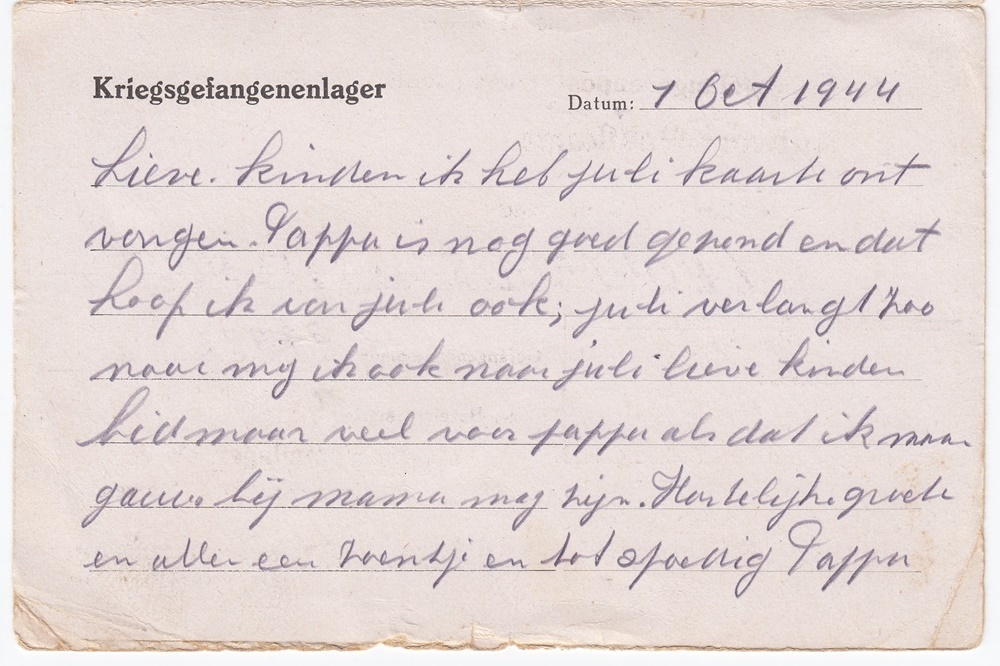 Kriegsgefangenenlager
Datum: 1 Oct 1944
Lieve. kinden ik heb juli kaarte ont
vangen. Pappa is nog goed gezond en dat
hoop ik van juli ook; juli verlangt zoo
naar mij ik ook naar juli lieve kinden
bid maar veel voor pappa als dat ik maar
gauw. bij mama mag zijn. Hartelijke groete
en allen een zoentje en tot spoedig Pappa